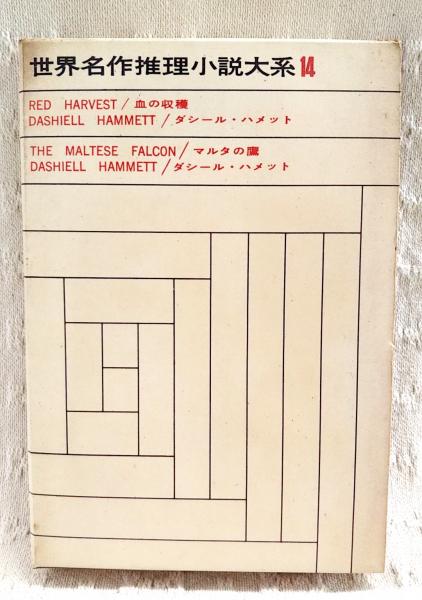 世界名作推理小説大系14
RED HARVEST / 血の収穫
DASHIELL HAMMETT / ダシール・ハメット
THE MALTESE FALCON / マルタの鷹
DASHIELL HAMMETT / ダシール・ハメット